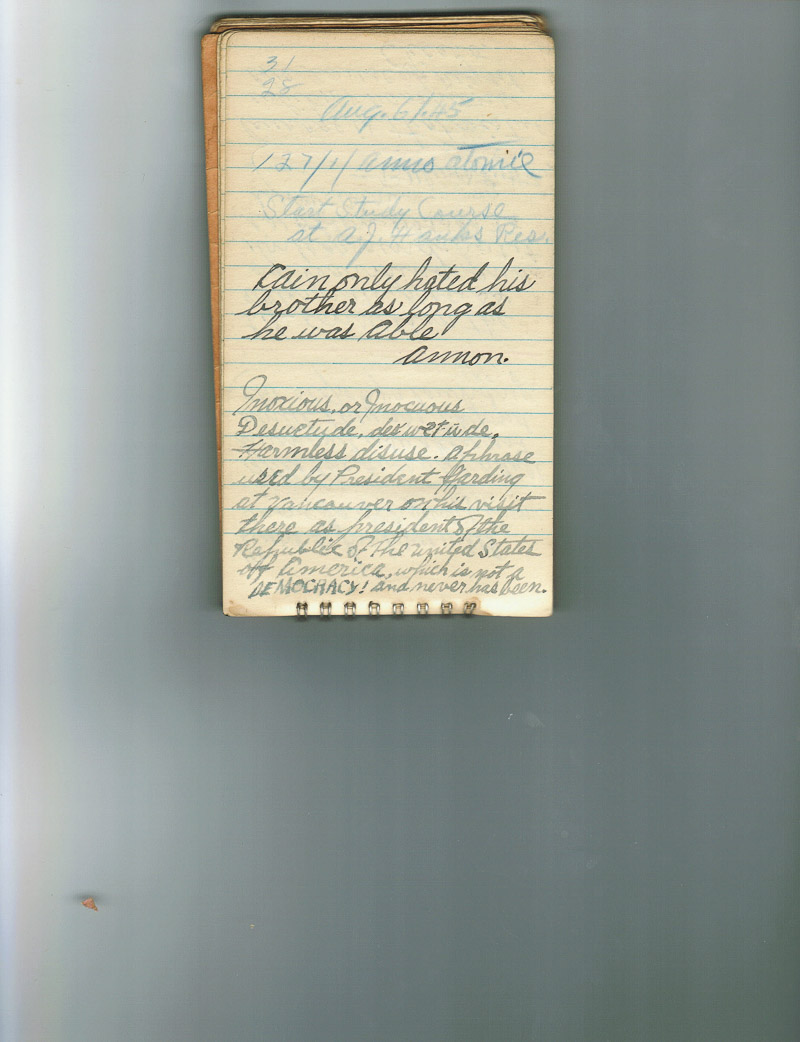 31
28
Aug. 6/45
127/1/ anno atomic
Start Study Course
at a.J. Hanks Res.
Cain only hated his
brother as long as
he was Able
annon.
Inoxious, or Inocuous
Desuetude,
Harmless disuse. a phrase
used by President Harding
at Vancouver on his visit
there as president of the
Republic of the united States
of America, which is not a
DEMOCRACY! and never has been.